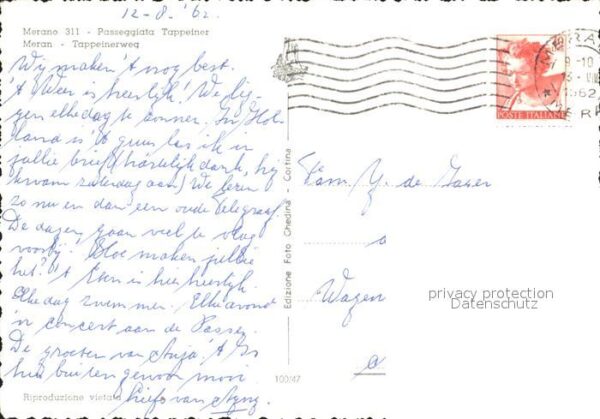 12-8-'62
Merano 311 - Passeggiata Tappeiner
Meran - Tappeinerweg
Wij maken 't nog best.
't Weer is heerlijk! We lig-
gen elke dag te zonnen. In Hol-
land is 't guur las ik in
jullie brief (hartelijk dank, hij
kwam zaterdag aan). We lezen
zo nu en dan een oude Telegraaf.
De dagen gaan veel te vlug
voorbij! Hoe maken jullie
het? 't Eten is hier heerlijk.
Elke dag zwemmen. Elke avond
'n concert aan de Passer.
De groeten van Anja! 't Is
hier buiten gewoon mooi.
Liefs van
Riproduzione vietata
Edizione Foto Ghedina - Cortina
100/47
9-10
1962
POSTE ITALIANE
Fam. de
a
Wagen
privacy protection
Datenschutz